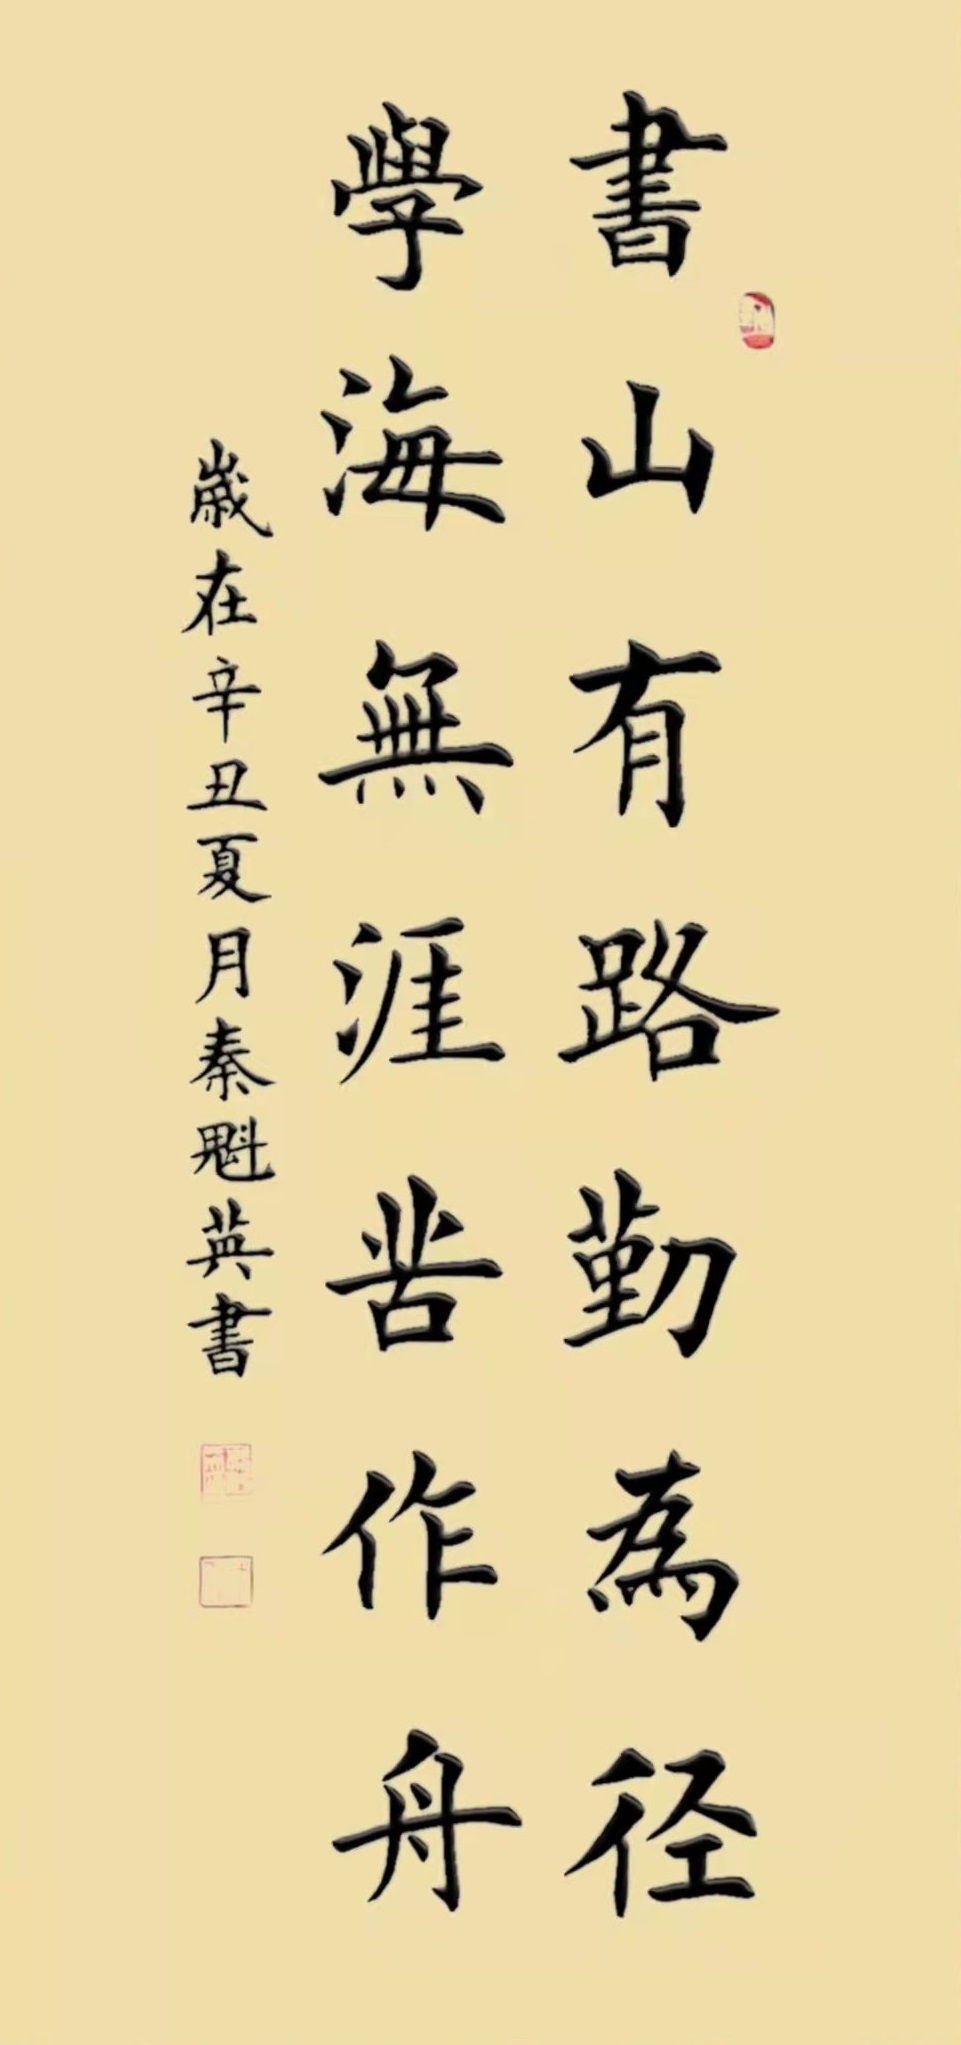 書山有路勤為径
學海無涯苦作舟
歲在辛丑夏月秦魁英書